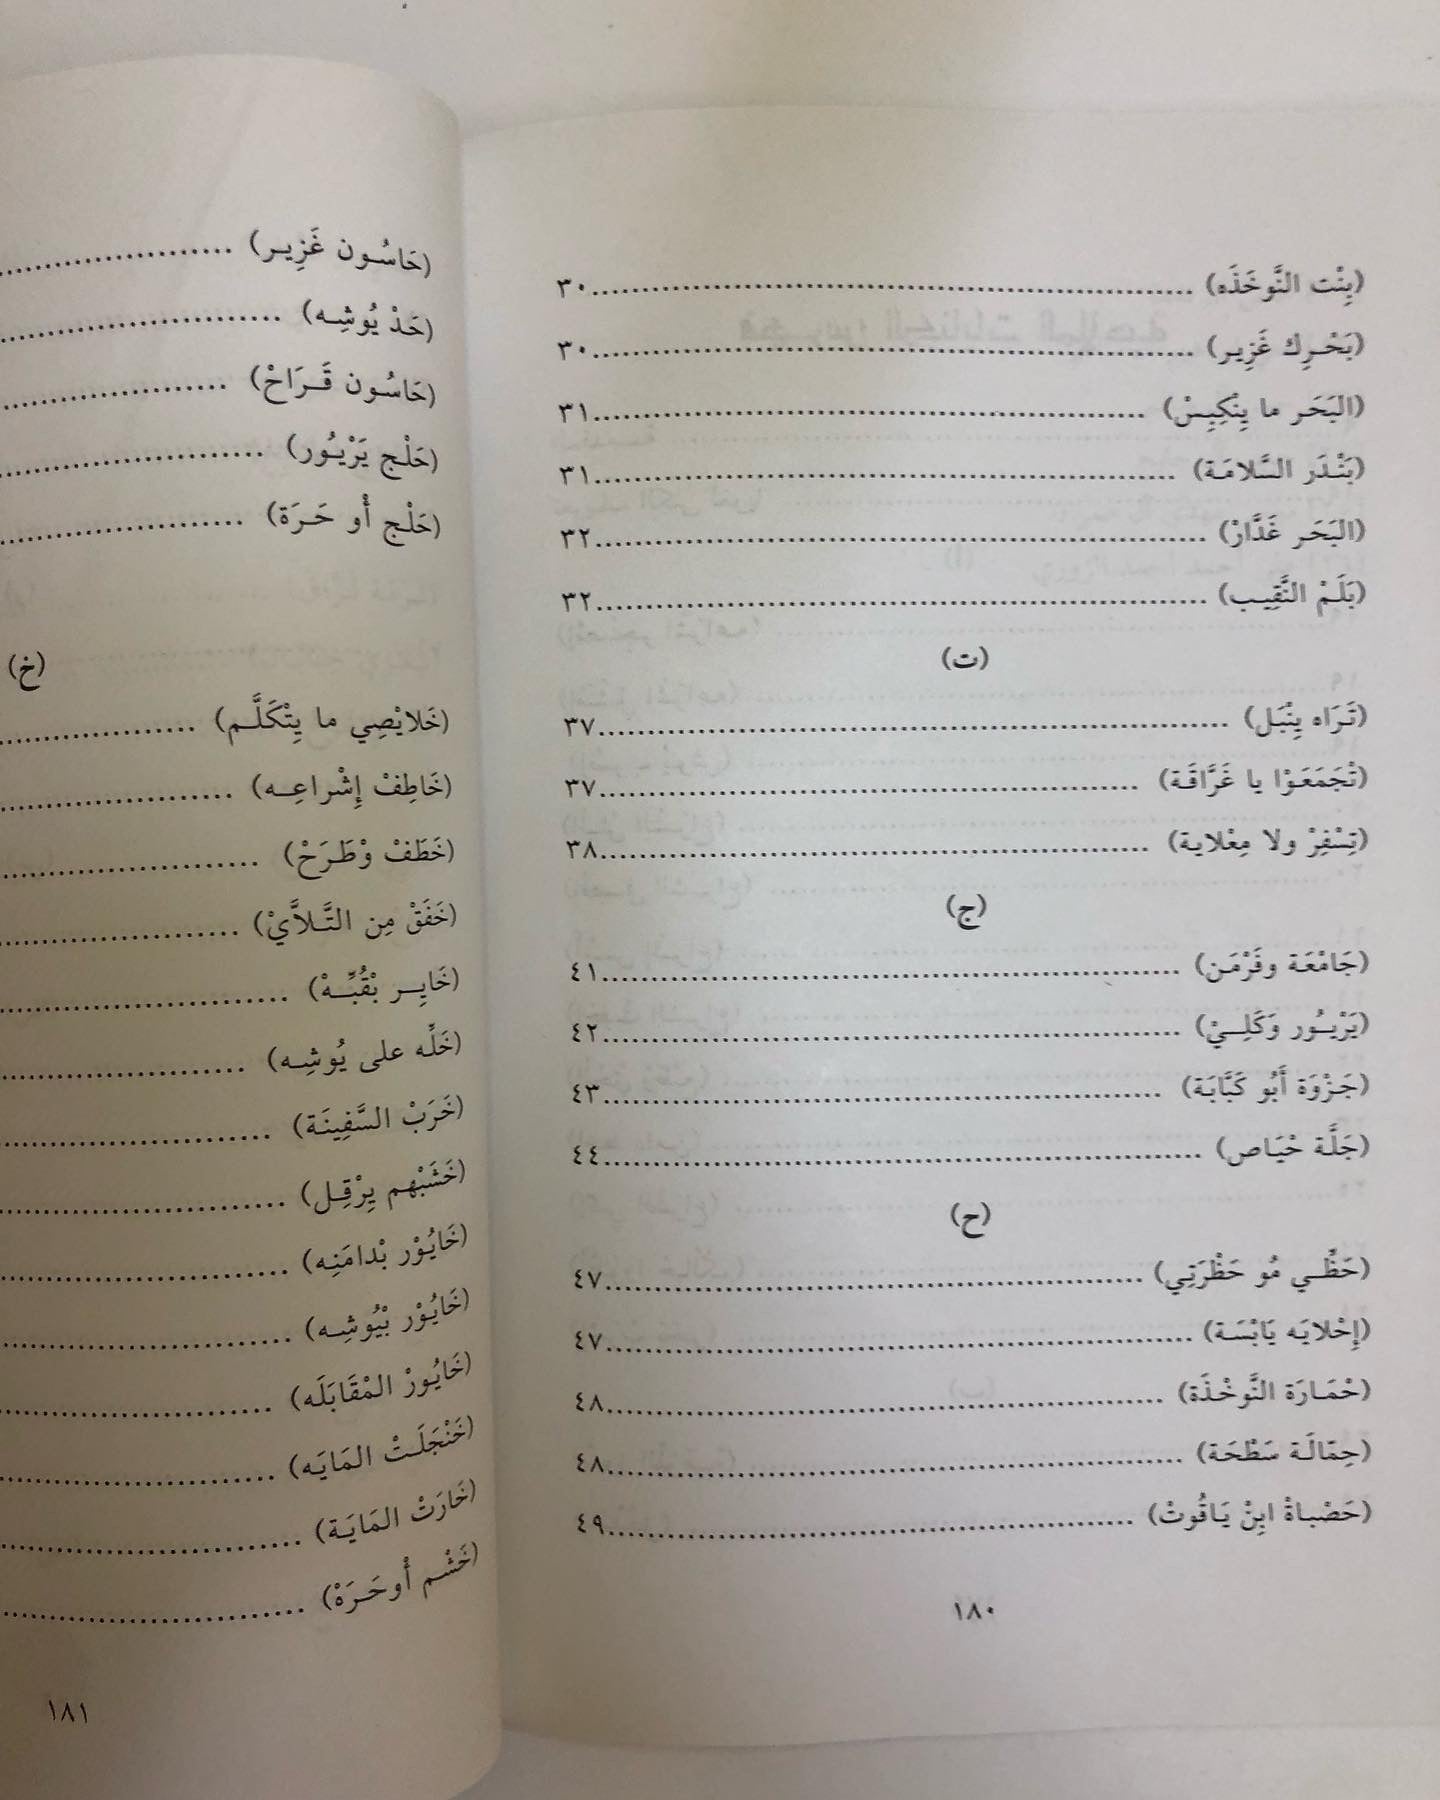 (بِنْت النَّوخَذَه) ........ ٣٠
(بَحْرِك غَزِير) ........ ٣٠
(البَحَر ما يِنْكِبِسْ) ........ ٣١
(بَنْدَر السَّلامَة) ........ ٣١
(البَحَر غَدَّارْ) ........ ٣٢
(بَلَمْ النَّقِيب) ........ ٣٢
(ت)
(تَرَاه يِنْبَل) ........ ٣٧
(تْجَمَعَوْا يا غَرَّاقَة) ........ ٣٧
(تِسْفِرْ ولا مِعْلاية) ........ ٣٨
(ج)
(جَامْعَة وفَرْمَن) ........ ٤١
(يَرْيُور وَكَلِيْ) ........ ٤٢
(جَزْوَة أَبُو كَبَّابَة) ........ ٤٣
(جَلَّة حْيَاص) ........ ٤٤
(ح)
(حَظِّي مُو حَظْرَتِي) ........ ٤٧
(إِحْلايَه يَابْسَة) ........ ٤٧
(حْمَارَة النَّوخْذَة) ........ ٤٨
(حِمّالَة سَطْحَة) ........ ٤٨
(حَصْباةْ ابِنْ يَاقُوتْ) ........ ٤٩
١٨٠
(حَاسُون غَزِير) ........
(حَدْ يُوشِه) ........
(حَاسُون قَرَاحْ) ........
(حَلْج يَرْيُور) ........
(حَلْج أْو حَرَة) ........
(خ)
(خَلايْصِي ما يِتْكَلَّم) ........
(خَاطِفْ إِشْراعِه) ........
(خَطَفْ وْطَرَحْ) ........
(خَفَقْ مِن التَّلاَّيْ) ........
(خَايِر بْقُبِّهْ) ........
(خَلِّه على يُوشِه) ........
(خَرَبْ السَّفِينَة) ........
(خَشَبْهم يِرْقِل) ........
(خَايُوْر بْدامَنِه) ........
(خَايُوْر بْيُوشِه) ........
(خَايُورْ المْقَابَلَه) ........
(خَنْجَلَتْ المَايَه) ........
(خَارَتْ المَايَة) ........
(خَشْم أْوحَرَهْ) ........
١٨١